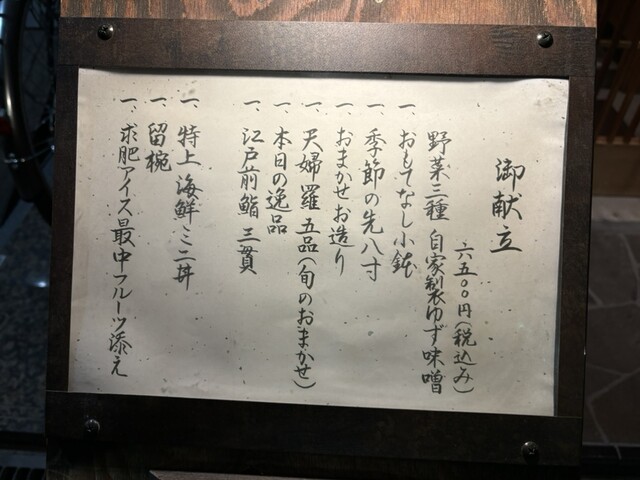 御献立
六五〇〇円(税込み)
野菜三種 自家製ゆず味噌
一、おもてなし小鉢
一、季節の先八寸
一、おまかせお造り
一、天婦羅 五品(旬のおまかせ)
一、本日の逸品
一、江戸前鮨 三貫
一、特上 海鮮ミニ丼
一、留椀
一、求肥アイス最中フルーツ添え